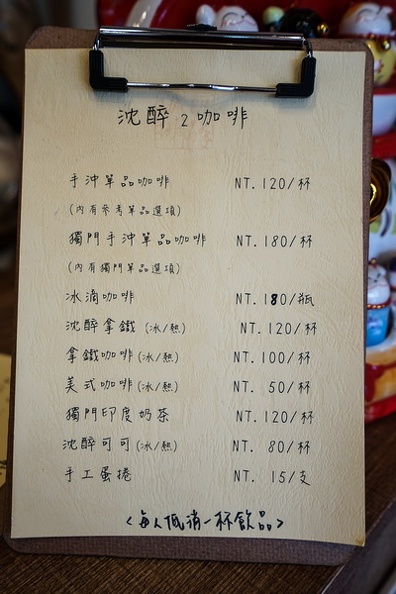 沈醉2咖啡
手沖單品咖啡 NT.120/杯
(內有參考單品選項)
獨門手沖單品咖啡 NT.180/杯
(內有獨門單品選項)
冰滴咖啡 NT.180/瓶
沈醉拿鐵(冰/熱) NT.120/杯
拿鐵咖啡(冰/熱) NT.100/杯
美式咖啡(冰/熱) NT. 50/杯
獨門印度奶茶 NT.120/杯
沈醉可可(冰/熱) NT. 80/杯
手工蛋捲 NT. 15/支
<每人低消一杯飲品>